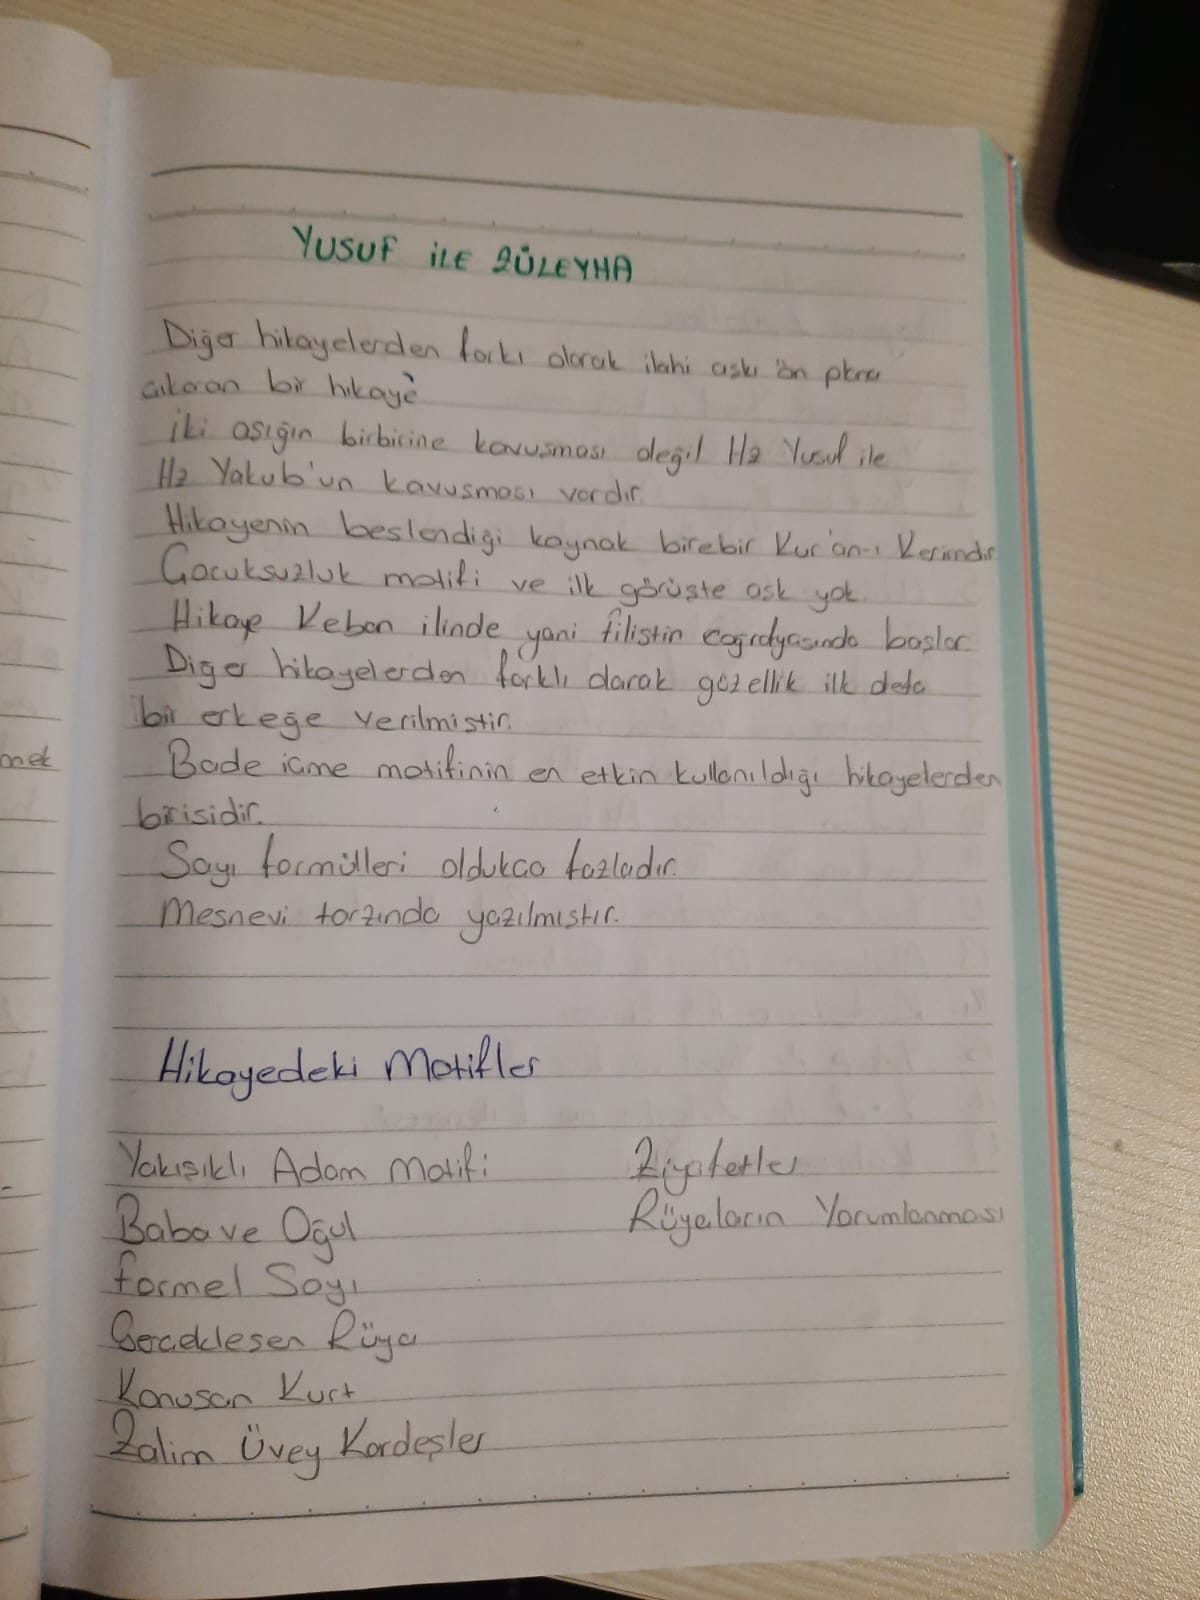 YUSUF İLE ZÜLEYHA
Diğer hikayelerden farkı olarak ilahi aşkı ön plana
çıkaran bir hikaye
İki aşığın birbirine kavuşması değil Hz Yusuf ile
Hz Yakub'un kavuşması vardır.
Hikayenin beslendiği kaynak birebir Kur'an-ı Kerimdir
Çocuksuzluk motifi ve ilk görüşte aşk yok
Hikaye Keban ilinde yani filistin coğrafyasında başlar
Diğer hikayelerden farklı olarak güzellik ilk defa
bir erkeğe verilmiştir.
Bade içme motifinin en etkin kullanıldığı hikayelerden
birisidir.
Sayı formülleri oldukca fazladır.
Mesnevi tarzında yazılmıştır.
Hikayedeki Motifler
Yakışıklı Adam Motifi
Baba ve Oğul
formel Sayı
Gerçekleşen Rüya
Konuşan Kurt
Zalim Üvey Kardeşler
Ziyafetler
Rüyaların Yorumlanması
mek